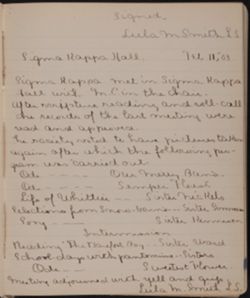 Signed
Lula M. Smith, S.S.
Sigma Kappa Hall. Feb 11, '03
Sigma Kappa met in Sigma Kappa
Hall with "M.C." in the chair.
After scripture reading and roll-call
the records of the last meeting were
read and approved.
We rasied, voted to have pictures taken
again after which the following pro-
gram was carried out
Ode Our Merry Band.
Ode Semper Fideli
Life of Whittier Sister
Selections from Snow-bound Sister
Song Sister Kennison
Intermission
Reading The Sister Ward
School days with pantomime Sisters
Ode Sweetest Flower.
Meeting adjourned with yell and grip.
Lula M. Smith S.S.